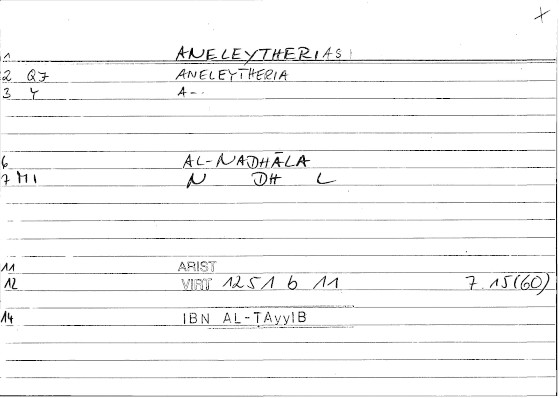 X
1 ANELEYTHERIAS
2 Q7 ANELEYTHERIA
3 Y A--
6 AL-NADHĀLA
7 M1 N DH L
11 ARIST
12 VIRT 1251 b 11 7.15(60)
14 IBN AL-TAyyIB